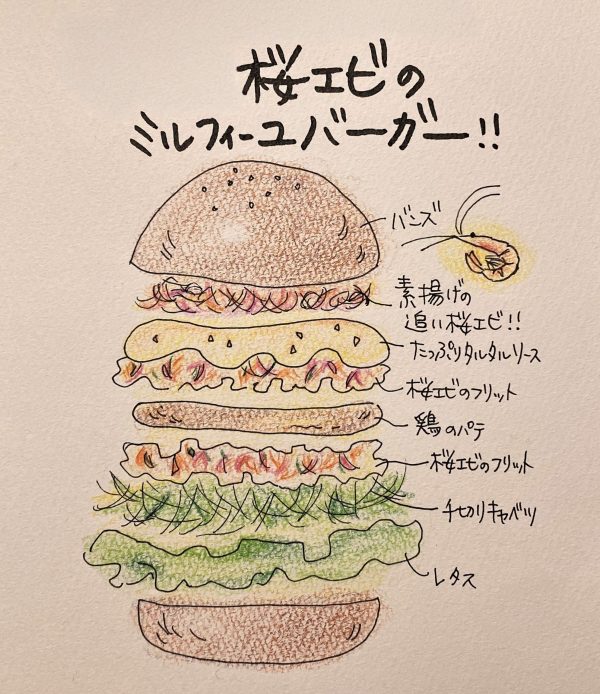 桜エビの
ミルフィーユバーガー!!
バンズ
素揚げの
追い桜エビ!!
たっぷりタルタルソース
桜エビのフリット
鶏のパテ
桜エビのフリット
千切りキャベツ
レタス